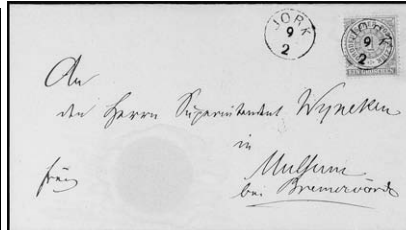 JORK
9
2
JORK
9
2
EIN GROSCHEN
An
den Herrn Superintendent Wyneken
in
Mulsum
bei Bremervörde
frei